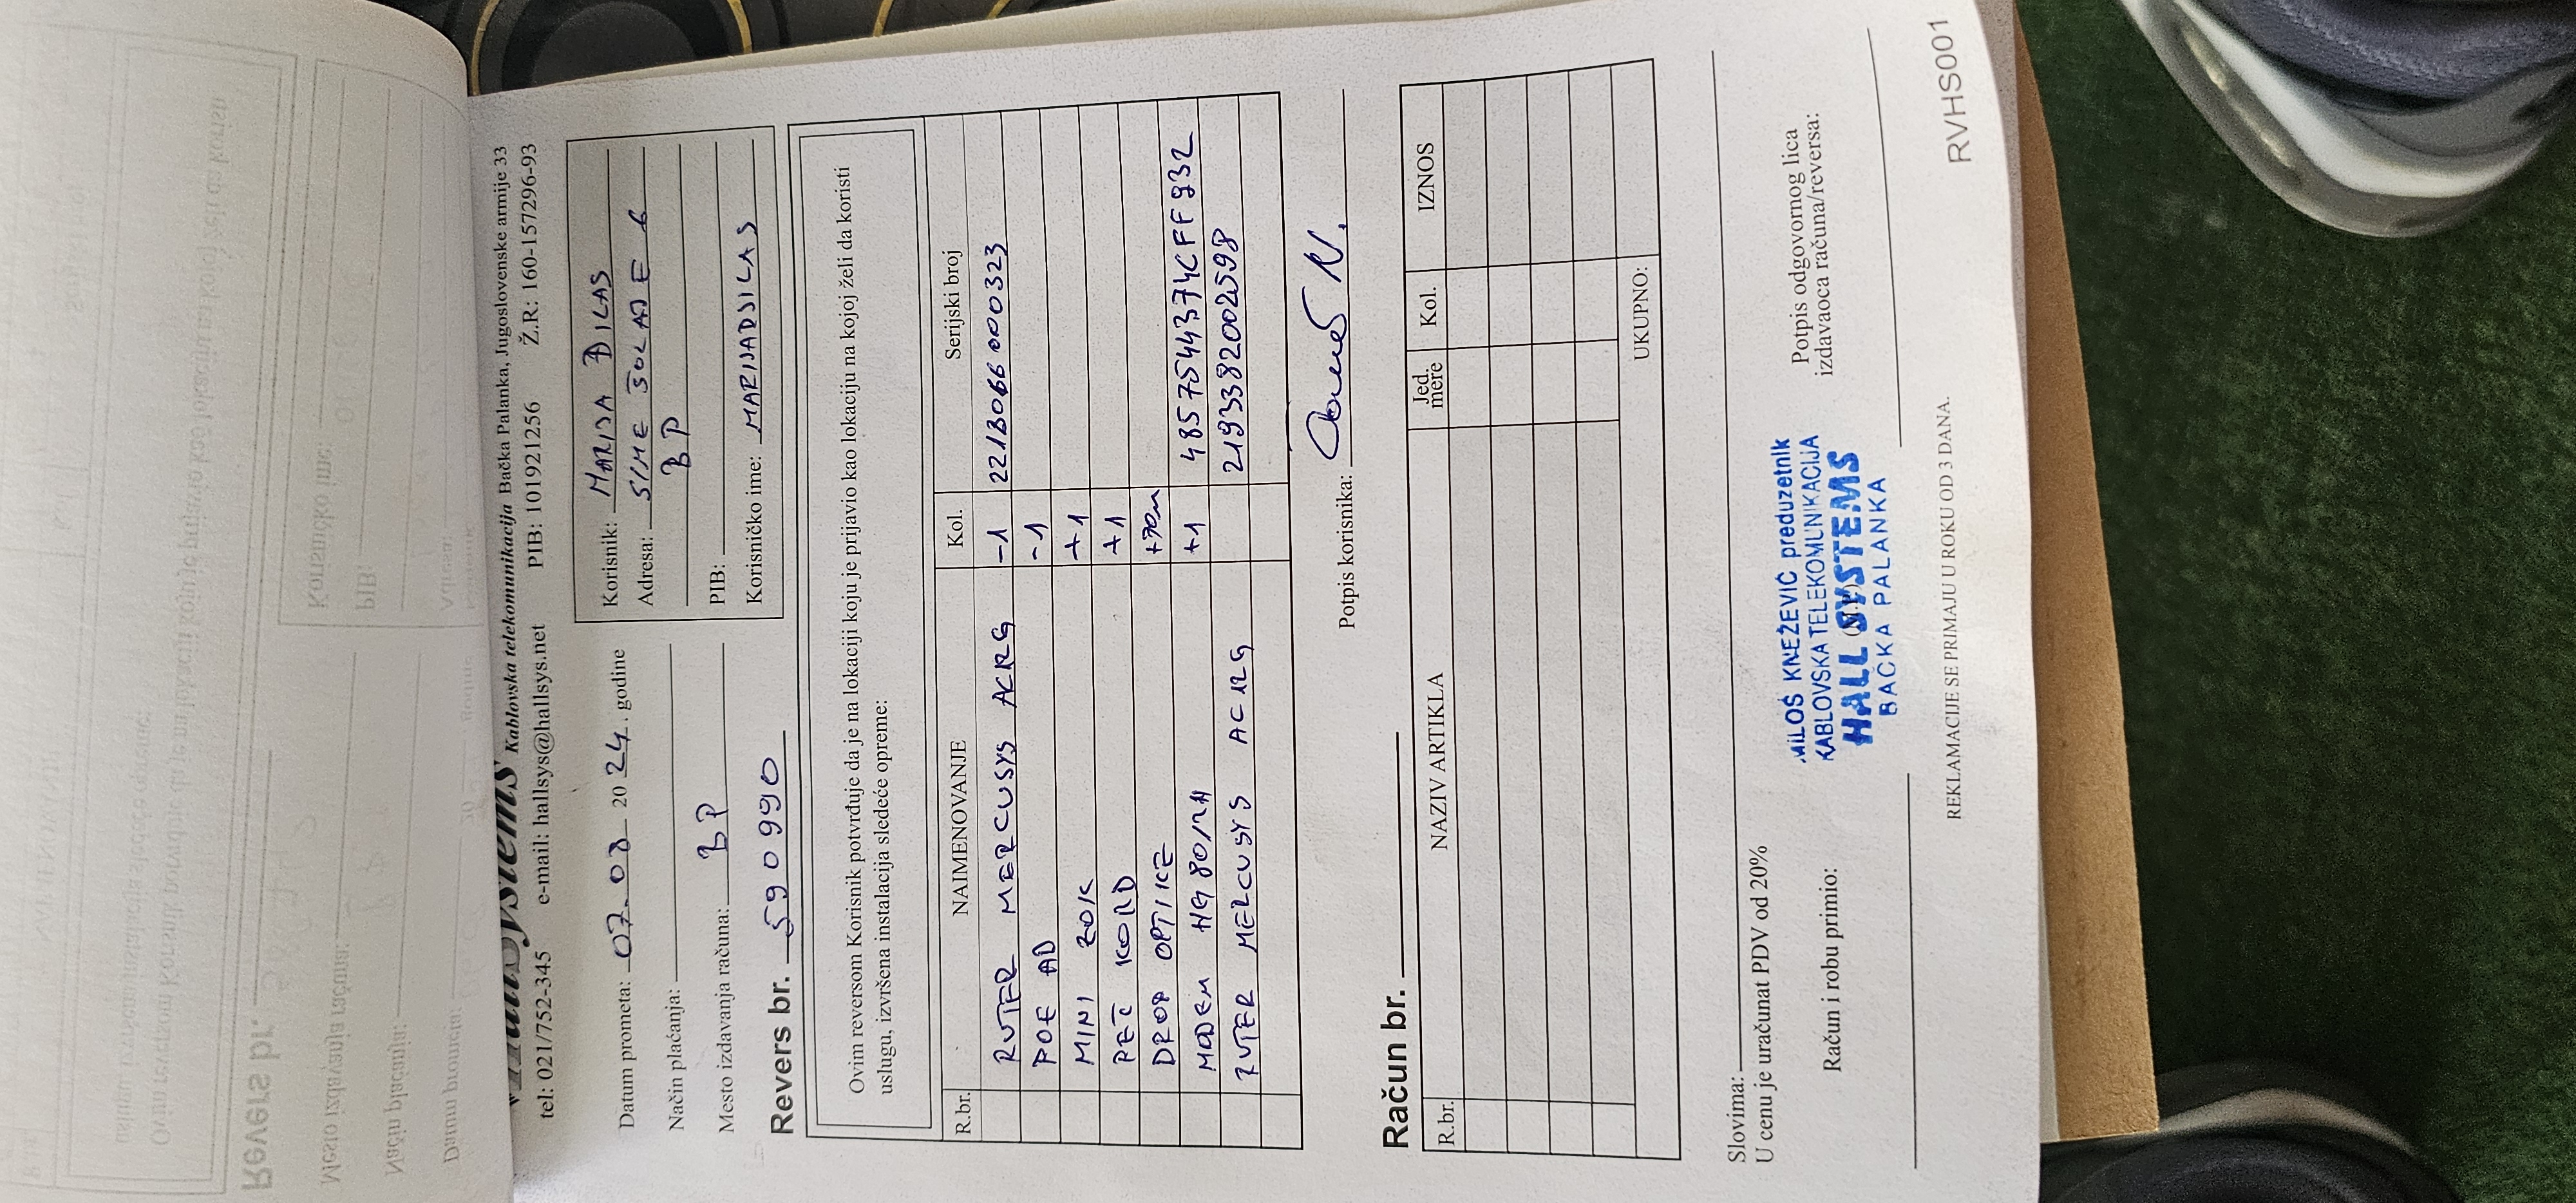 HallSystems Kablovska telekomunikacija Bačka Palanka, Jugoslovenske armije 33
tel: 021/752-345 e-mail: hallsys@hallsys.net PIB: 101921256 Ž.R: 160-157296-93
Datum prometa: 07.08 2024. godine
Način plaćanja:
Mesto izdavanja računa: BP
Revers br. 590990
Korisnik: MARIJA ĐILAS
Adresa: SIME ŠOLAJE 6
BP
PIB:
Korisničko ime: MARIJADJILAS
Ovim reversom Korisnik potvrđuje da je na lokaciji koju je prijavio kao lokaciju na kojoj želi da koristi
uslugu, izvršena instalacija sledeće opreme:
R.br. NAIMENOVANJE Kol. Serijski broj
RUTER MERCUSYS AC12G -1 221B066000323
POE AD -1
MINI ZOK +1
PEČ KORD +1
DROP OPTIKE +70m
MODEM HG8012H +1 4857544374CFF932
RUTER MERCUSYS AC12G 2193382002598
Potpis korisnika:
Račun br.
R.br. NAZIV ARTIKLA Jed. mere Kol. IZNOS
UKUPNO:
Slovima:
U cenu je uračunat PDV od 20%
Račun i robu primio:
MILOŠ KNEŽEVIĆ preduzetnik
KABLOVSKA TELEKOMUNIKACIJA
HALL SYSTEMS
BAČKA PALANKA
Potpis odgovornog lica
izdavaoca računa/reversa:
REKLAMACIJE SE PRIMAJU U ROKU OD 3 DANA.
RVHS001